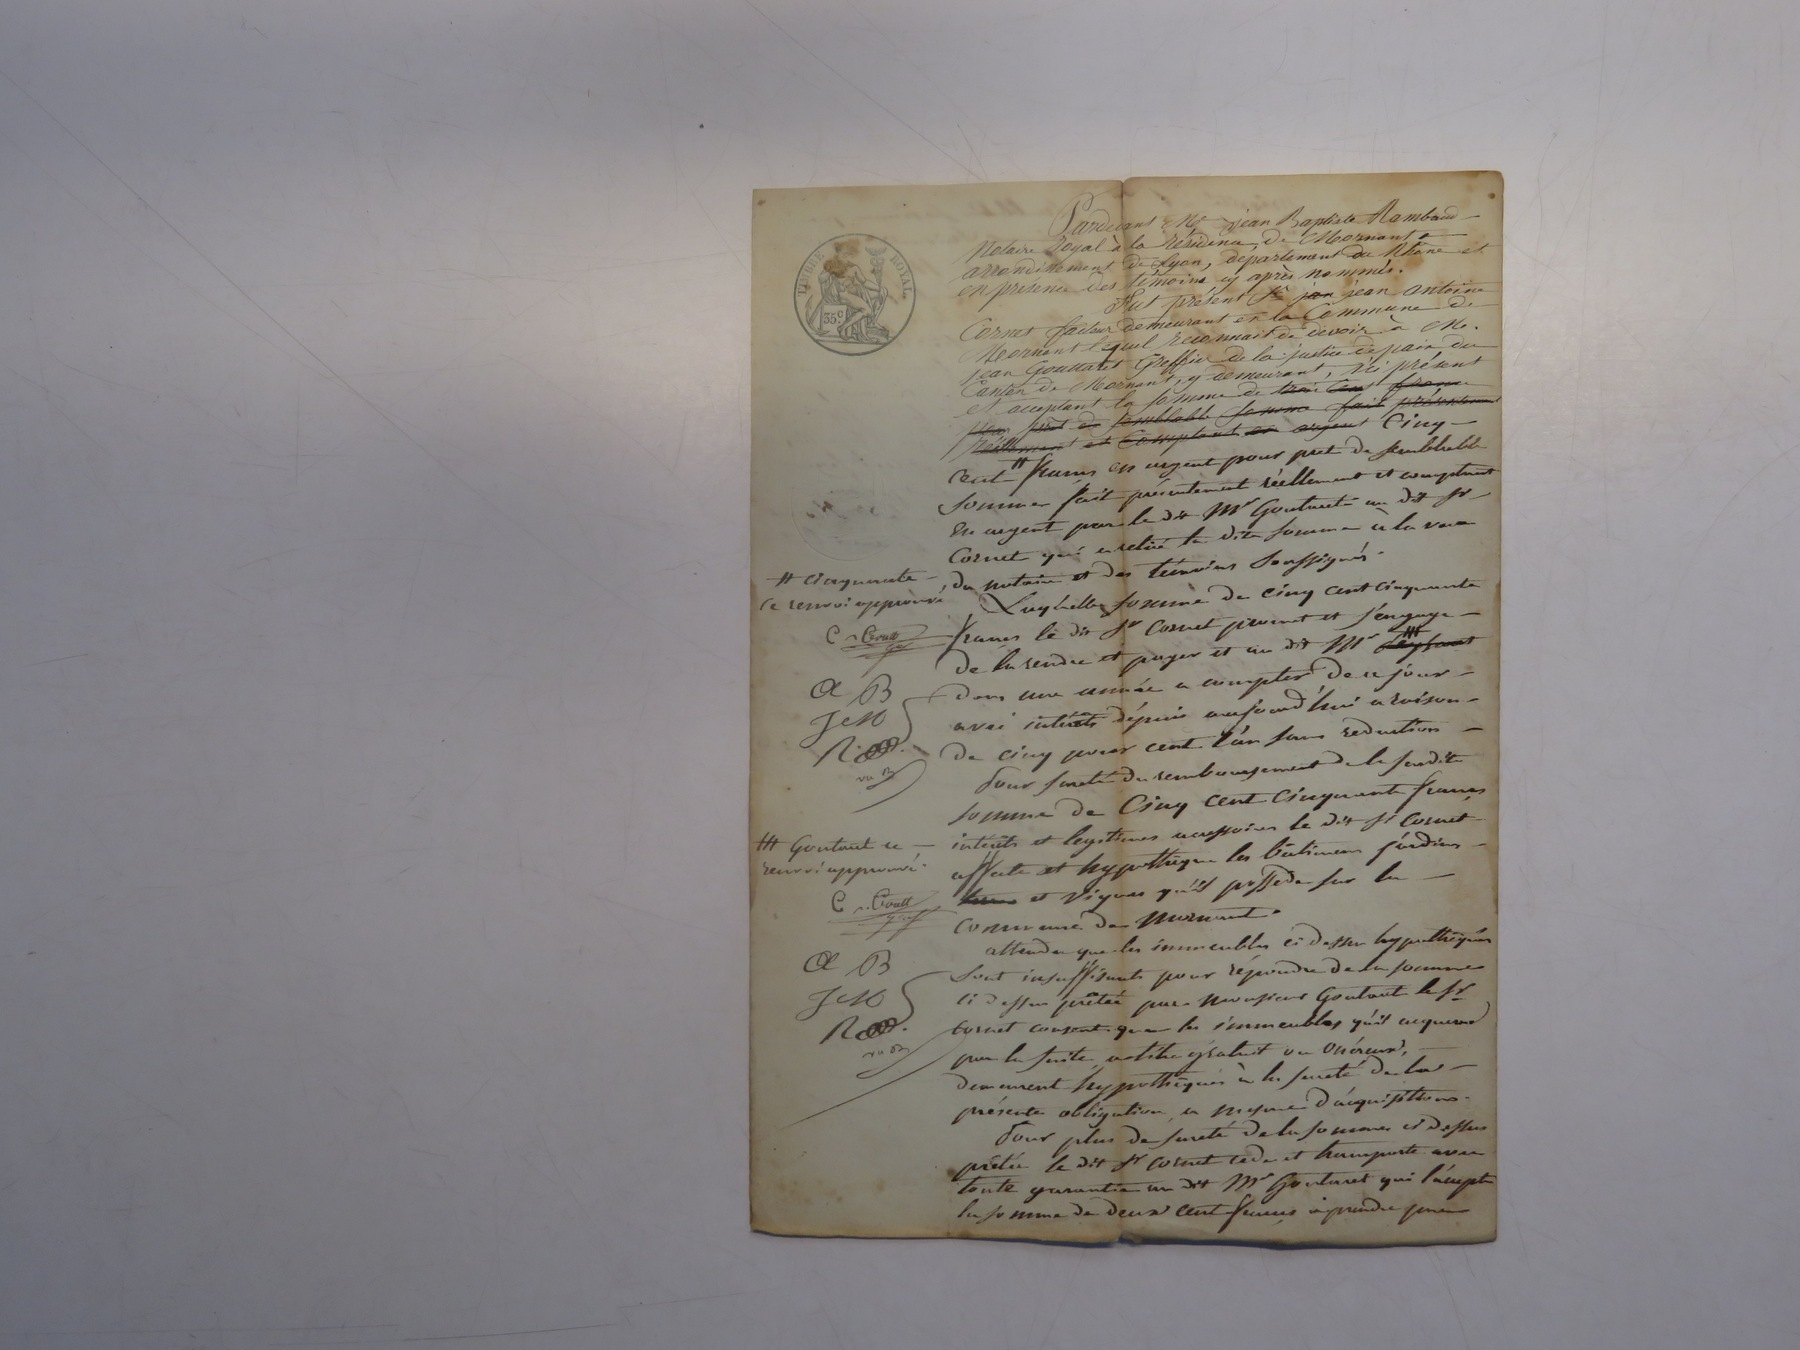 TIMBRE ROYAL
35 c
Pardevant Me jean Baptiste Rambaud
Notaire royal à la résidence de Mornant
arrondissement de Lyon, departement du Rhône et
en presence des témoins cy après nommés.
Fut présent Sr jean antoine
Cornet facteur demeurant en la Commune de
Mornant lequel reconnait de devoir à M.
jean Goutaret Greffier de la justice de paix du
Canton de Mornant, y demeurant, ici présent
et acceptant la somme de trois cent francs
pour prêt de semblable somme fait présentement
réellement et comptant en argent Cinq
cent # francs en argent pour pret de semblable
somme fait présentement réellement et comptant
en argent par le dit Mr Goutaret au dit Sr
Cornet qui a retiré la dite somme à la vue
du notaire et des témoins soussignés.
# cinquante
ce renvoi approuvé
Laquelle somme de cinq cent cinquante
francs le dit Sr Cornet promet et s'engage
de la rendre et payer et au dit Mr
dans une année a compter de ce jour
avec intérêts depuis aujourd'hui a raison
de cinq pour cent l'an sans reduction
C B
JCM
R
Pour sureté du remboursement de la susdite
somme de Cinq cent cinquante francs
intérêts et legitimes accessoires le dit Sr Cornet
affecte et hypothèque les bâtimens jardins
terres et vignes qu'il possède sur la
commune de Mornant.
ce
renvoi approuvé.
attendu que les immeubles ci dessus hypothéqués
sont insuffisants pour répondre de la somme
ci dessus prêtée par Monsieur Goutaret le Sr
Cornet consent que les immeubles qu'il acquerra
par la suite, a titre gratuit ou onéreux,
demeurent hypothéqués à la sureté de la
présente obligation, a mesure d'acquisitions.
C B
JCM
R
Pour plus de sureté de la somme ci dessus
prêtée le dit Sr Cornet cede et transporte avec
toute garantie au dit Mr Goutaret qui l'accepte
la somme de deux cent francs à prendre